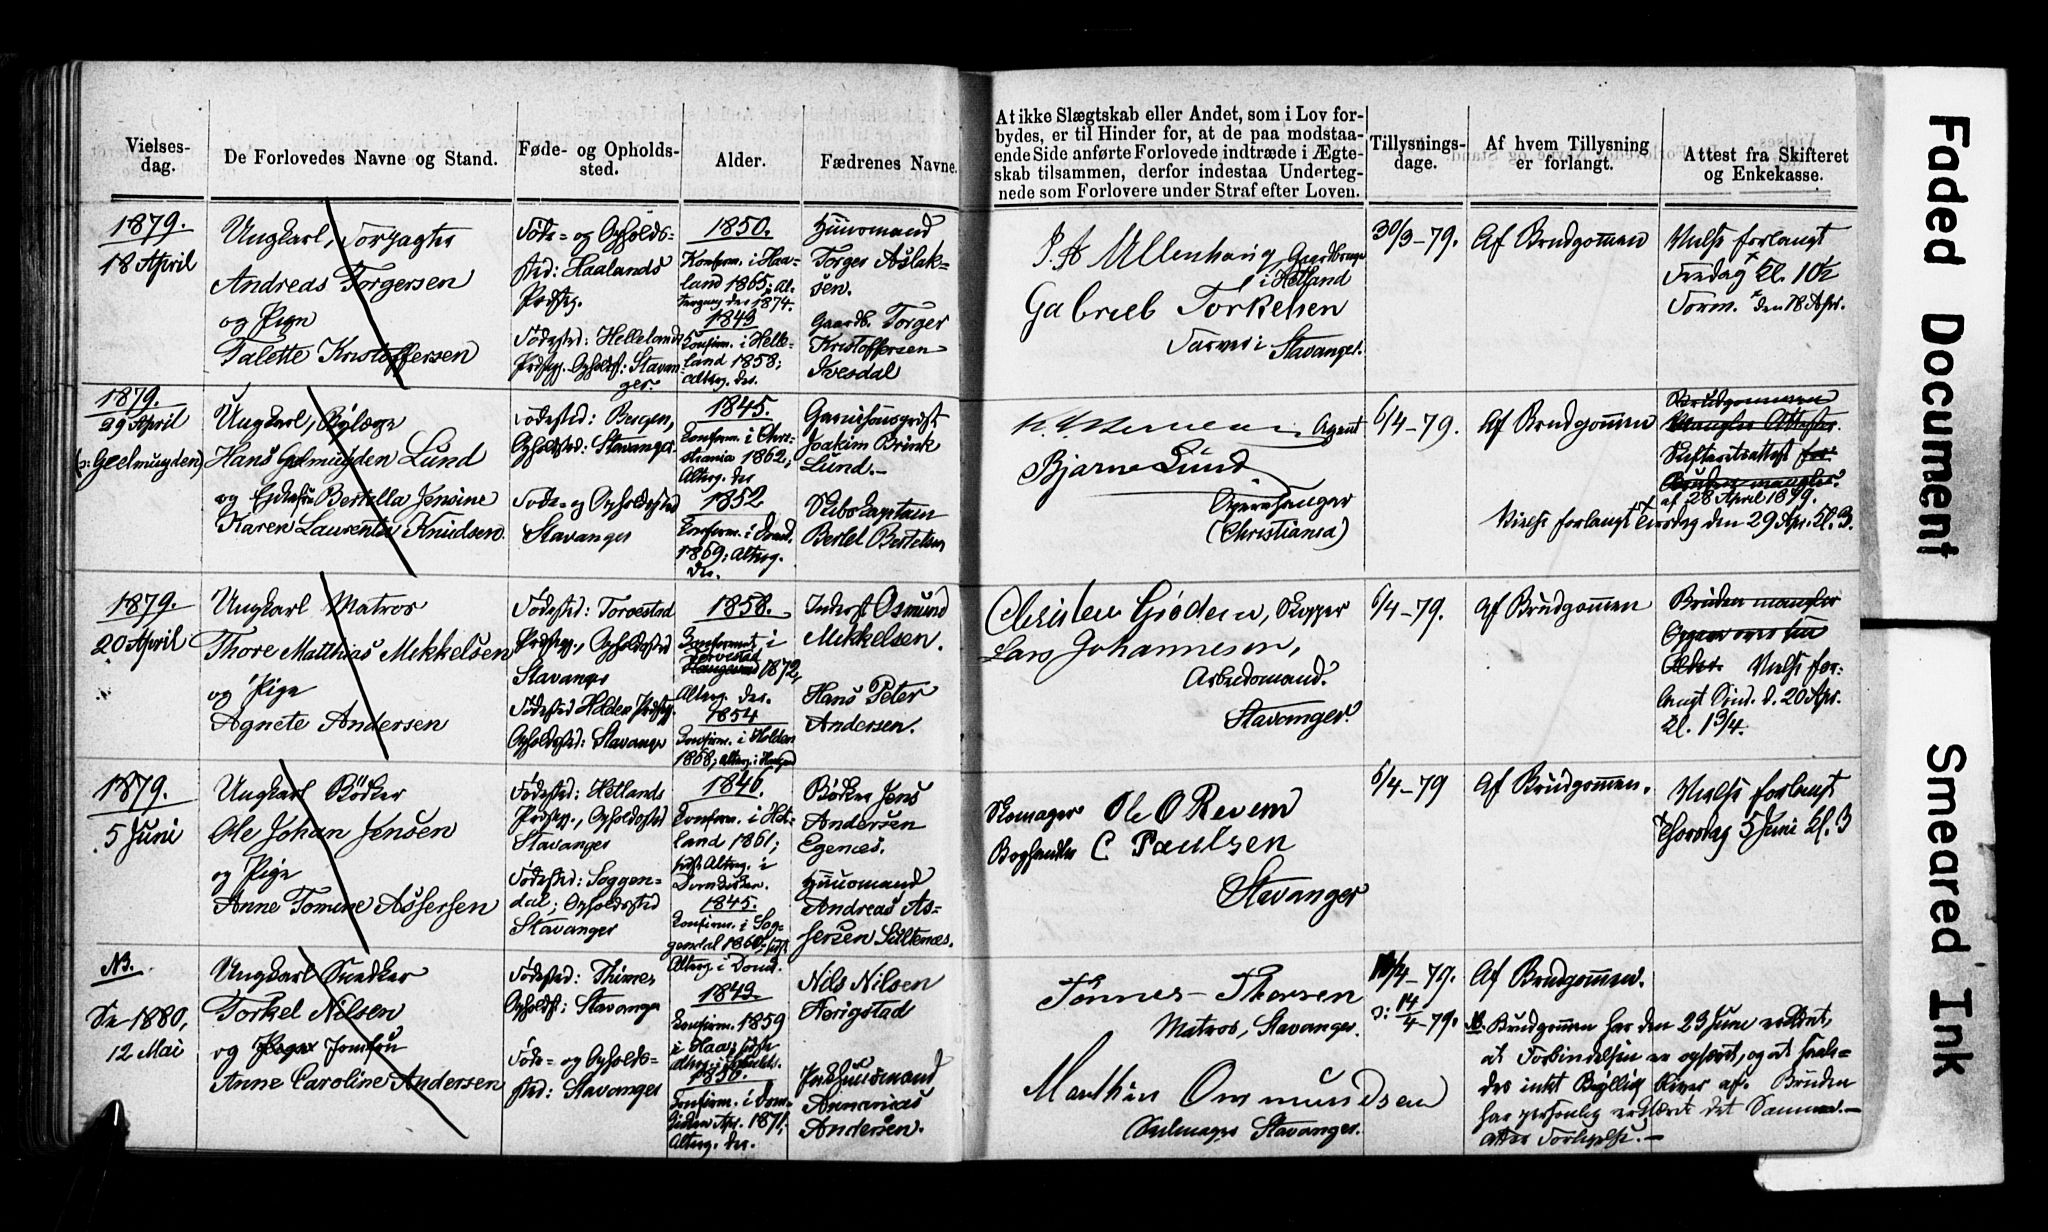 Vielses-
dag.
De Forlovedes Navne og Stand.
Føde- og Opholds-
sted.
Alder.
Fædrenes Navne.
At ikke Slægtskab eller Andet, som i Lov for-
bydes, er til Hinder for, at de paa modstaa-
ende Side anførte Forlovede indtræde i Ægte-
skab tilsammen, derfor indestaa Underteg-
nede som Forlovere under Straf efter Loven.
Tillysnings-
dage.
Af hvem Tillysning
er forlangt.
Attest fra Skifteret
og Enkekasse.
1879.
18 April
Ungkarl,
Andreas Torgersen
og Pige
Talette Kristoffersen
Føde- og Opholds-
sted: Haalands
Prdstgj.
Fødested: Hellelands
Prdstgj. Opholdst: Stavan-
ger.
1850.
Konfirm. i Haa-
land 1865; Al-
tergang des 1874.
1843
Konfirm. i Helle-
land 1858;
Alterg. des.
Huusmand
Torger Aslak-
sen.
Gaardb. Torger
Kristoffersen
Ivesdal
Ullenhaug, Gaardbruger
i Hetland
Gabriel Torkelsen
Farver i Stavanger.
30/3-79.
Af Brudgommen
Vielse forlangt
Fredag Kl. 10½
Form. den 18 Apr.
1879.
29 April
(: Geelmuyden)
Ungkarl,
Hans Gelmuyden Lund
og Bertella Jensine
Karen Laurentia Knudsen.
Fødested: Bergen,
Opholdsted: Stavanger.
Føde- og Opholdssted
Stavanger
1845.
Konfirm. i Chri-
stiania 1862;
Alterg. des
1852
Konfirm. i Domk.
1869; Alterg.
des.
Garnisonsprest
Joakim Brink
Lund.
Skibskaptein
Bertel Bertelsen
Agent
Bjarne Lund
(Christiania)
6/4-79.
Af Brudgommen
Brudgommen
Mangler Attester
Skifteretsattest for
Bruden mangler.
af 28 April 1879.
Vielse forlangt Tirsdag den 29 Apr. Kl. 3.
1879.
20 April
Ungkarl Matros
Thore Matthias Mekkelsen
og Pige
Agnete Andersen
Fødested: Torvestad
Prdstgj., Opholdssted
Stavanger
Fødested Holden Prdstgj.
Opholdssted: Stavanger
1858.
Konfirmert i
Torvestad
Stavanger 1872,
Alterg. des.
1854
Konfirm. i Holden
1868; Alterg. i
Inderst Osmund
Mekkelsen.
Hans Peter
Andersen.
Christen Skipper
Lars Johannesen,
Arbeidsmand.
Stavanger.
6/4-79.
Af Brudgommen
Bruden mangler
Opgave over sin
Alder. Vielse for-
langt Sønd. d. 20 Apr.
Kl. 1¾.
1879.
5 Juni
Ungkarl Bödker
Ole Johan Jensen
og Pige
Anne Tomine Assersen
Fødested: Hetlands
Prdstgj., Opholdssted
Stavanger
Fødested: Soggen-
dal; Opholdssted
Stavanger
1846.
Konfirm. i Het-
land 1861;
sidst Alterg. i
Domkirken.
1845.
Konfirm. i Sog-
gendal 1860; sidst
Alterg. i Domk.
Bødker Jens
Andersen
Egenæs.
Huusmand
Andreas As-
sersen
Skomager Ole O Revem
Boghandler C Paulsen
Stavanger
6/4-79
Af Brudgommen.
Vielse forlangt
Thorsdag 5 Juni Kl. 3
NB.
Se 1880,
12 Mai
Ungkarl Snedker
Torkel Nilsen
og Pige Jomfru
Anne Caroline Andersen
Fødested: Thimes
Opholdst: Stavanger
Føde- og Opholds-
sted: Stavanger
1843.
Konfirm. 1859
i Haa; sidste
1856.
Konfirm. i Dom-
kirken Apr. 1871;
Alterg. des.
Nils Nilsen
Horigstad
Huusmand
Ananias
Andersen.
Tönnes Thorsen
Matros, Stavanger.
Marthin Ommundsen
Seilmager Stavanger.
4-79.
: 14/4-79.
Af Brudgommen.
NB. Brudgommen har den 23 Juni erklæret,
at Forbindelsen er ophævet, og at saale-
des intet Bryllup bliver af. Bruden
har personlig erklæret det Samme.
efter Forlovelse.
Faded Document
Smeared Ink